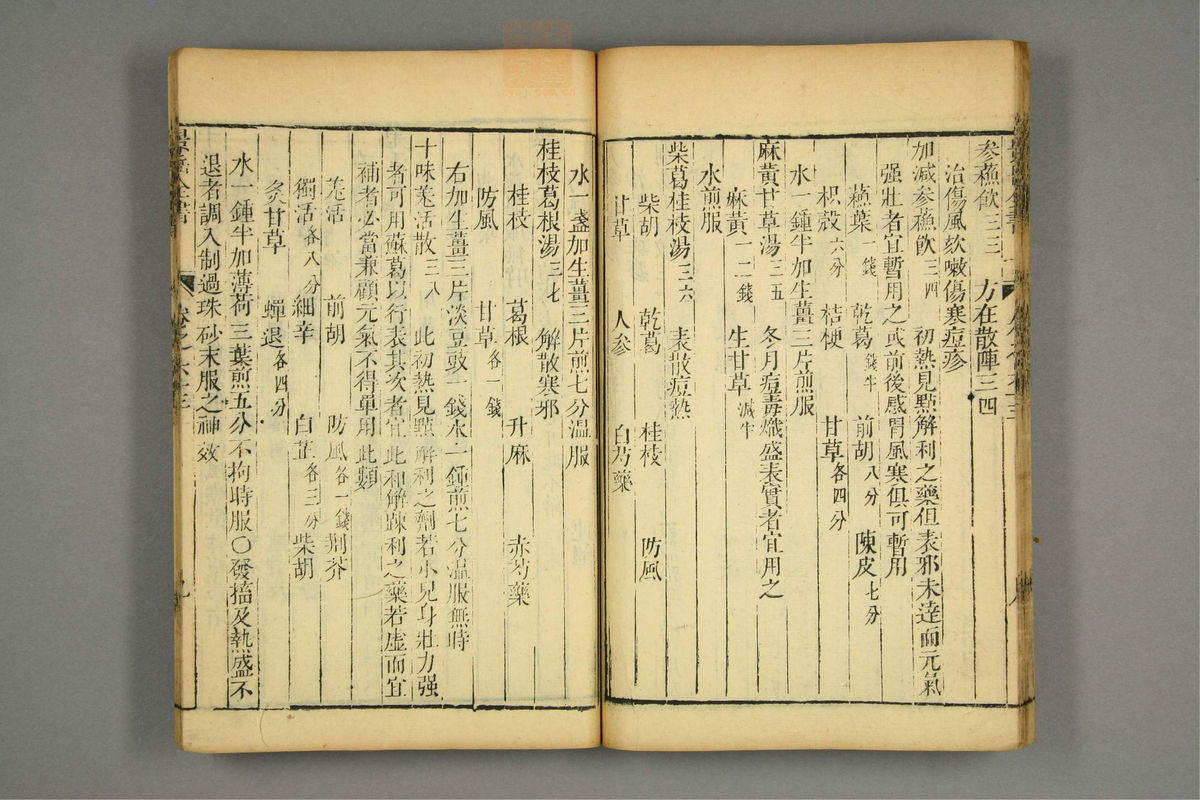 參蘓飲三三　方在散陣三四
治傷風欬嗽傷寒痘疹
加減參蘓飲三四　初熱見點解利之藥但表邪未達而元氣
强壯者宜暫用之或前後感冐風寒俱可暫用
蘓葉一錢　乾葛錢半　前胡八分　陳皮七分
枳殼六分　桔梗　甘草各四分
水一鍾半加生薑三片煎服
麻黃甘草湯三五　冬月痘毒熾盛表實者宜用之
麻黃一二錢　生甘草減半
水煎服
柴葛桂枝湯三六　表散痘熱
柴胡　乾葛　桂枝　防風
甘草　人參　白芍藥
水一盞加生薑三片煎七分温服
桂枝葛根湯三七　解散寒邪
桂枝　葛根　升麻　赤芍藥
防風　甘草各一錢
右加生薑三片淡豆豉一錢水二鍾煎七分温服無時
十味羗活散三八　此初熱見點解利之劑若小兒身壯力强
者可用蘇葛以行表其次者宜此和解踈利之藥若虛而宜
補者必當兼顧元氣不得單用此類
羗活　前胡　防風各一錢　荆芥
獨活各八分　細辛　白芷各三分　柴胡
炙甘草　蟬退各四分
水一鍾半加薄荷三葉煎五分不拘時服〇發搐及熱盛不
退者調入制過珠砂末服之神效
景岳全書　卷之六十三　九